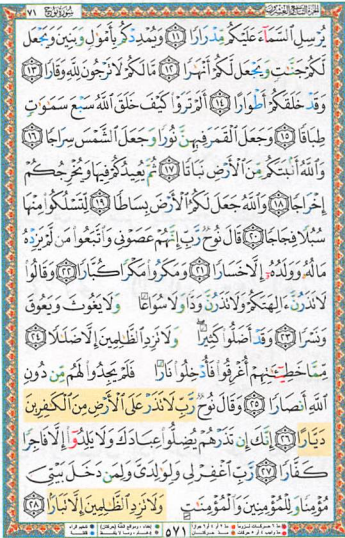 سُورَةُ نُوحٍ ٧١
يُرْسِلِ ٱلسَّمَآءَ عَلَيْكُم مِّدْرَارًا ١١ وَيُمْدِدْكُم بِأَمْوَٰلٍ وَبَنِينَ وَيَجْعَل
لَّكُمْ جَنَّٰتٍ وَيَجْعَل لَّكُمْ أَنْهَٰرًا ١٢ مَّا لَكُمْ لَا تَرْجُونَ لِلَّهِ وَقَارًا ١٣
وَقَدْ خَلَقَكُمْ أَطْوَارًا ١٤ أَلَمْ تَرَوْا۟ كَيْفَ خَلَقَ ٱللَّهُ سَبْعَ سَمَٰوَٰتٍ
طِبَاقًا ١٥ وَجَعَلَ ٱلْقَمَرَ فِيهِنَّ نُورًا وَجَعَلَ ٱلشَّمْسَ سِرَاجًا ١٦
وَٱللَّهُ أَنۢبَتَكُم مِّنَ ٱلْأَرْضِ نَبَاتًا ١٧ ثُمَّ يُعِيدُكُمْ فِيهَا وَيُخْرِجُكُمْ
إِخْرَاجًا ١٨ وَٱللَّهُ جَعَلَ لَكُمُ ٱلْأَرْضَ بِسَاطًا ١٩ لِّتَسْلُكُوا۟ مِنْهَا
سُبُلًا فِجَاجًا ٢٠ قَالَ نُوحٌ رَّبِّ إِنَّهُمْ عَصَوْنِى وَٱتَّبَعُوا۟ مَن لَّمْ يَزِدْهُ
مَالُهُۥ وَوَلَدُهُۥٓ إِلَّا خَسَارًا ٢١ وَمَكَرُوا۟ مَكْرًا كُبَّارًا ٢٢ وَقَالُوا۟
لَا تَذَرُنَّ ءَالِهَتَكُمْ وَلَا تَذَرُنَّ وَدًّا وَلَا سُوَاعًا وَلَا يَغُوثَ وَيَعُوقَ
وَنَسْرًا ٢٣ وَقَدْ أَضَلُّوا۟ كَثِيرًا وَلَا تَزِدِ ٱلظَّٰلِمِينَ إِلَّا ضَلَٰلًا ٢٤
مِّمَّا خَطِيٓـَٰٔتِهِمْ أُغْرِقُوا۟ فَأُدْخِلُوا۟ نَارًا فَلَمْ يَجِدُوا۟ لَهُم مِّن دُونِ
ٱللَّهِ أَنصَارًا ٢٥ وَقَالَ نُوحٌ رَّبِّ لَا تَذَرْ عَلَى ٱلْأَرْضِ مِنَ ٱلْكَٰفِرِينَ
دَيَّارًا ٢٦ إِنَّكَ إِن تَذَرْهُمْ يُضِلُّوا۟ عِبَادَكَ وَلَا يَلِدُوٓا۟ إِلَّا فَاجِرًا
كَفَّارًا ٢٧ رَّبِّ ٱغْفِرْ لِى وَلِوَٰلِدَىَّ وَلِمَن دَخَلَ بَيْتِىَ
مُؤْمِنًا وَلِلْمُؤْمِنِينَ وَٱلْمُؤْمِنَٰتِ وَلَا تَزِدِ ٱلظَّٰلِمِينَ إِلَّا تَبَارًۢا ٢٨
٥٧١